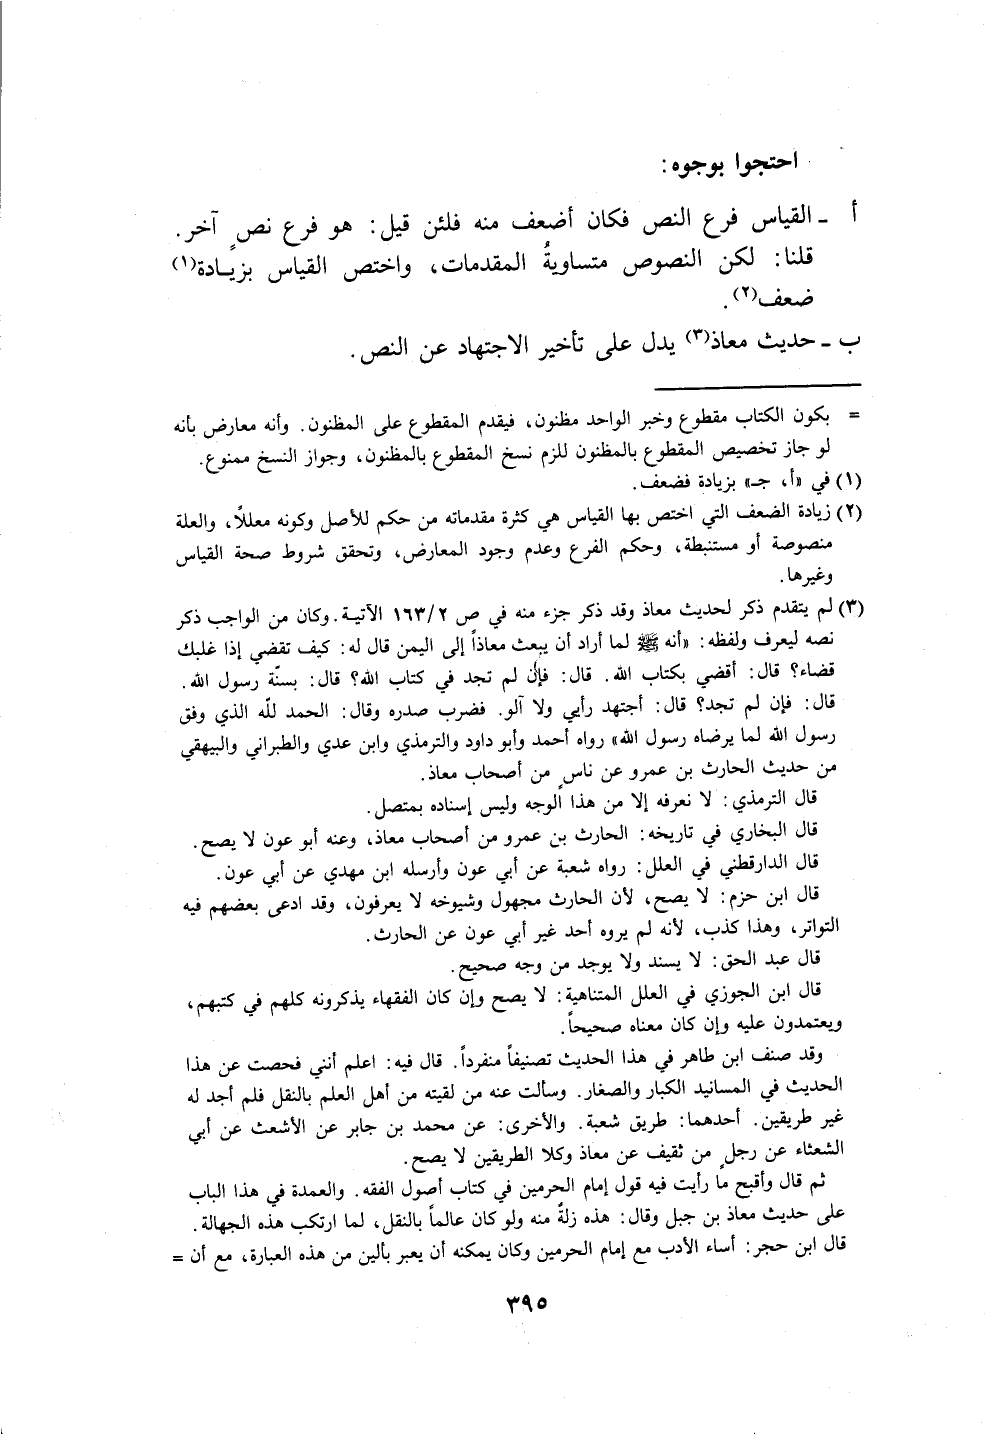 احتجوا بوجوه:
أ ـ القياس فرع النص فكان أضعف منه فلئن قيل: هو فرع نصٍ آخر.
قلنا: لكن النصوص متساويةُ المقدمات، واختص القياس بزيادة(١)
ضعف(٢).
ب ـ حديث معاذ(٣) يدل على تأخير الاجتهاد عن النص.
= بكون الكتاب مقطوع وخبر الواحد مظنون، فيقدم المقطوع على المظنون. وأنه معارض بأنه
لو جاز تخصيص المقطوع بالمظنون للزم نسخ المقطوع بالمظنون، وجواز النسخ ممنوع.
(١) في «أ، جـ» بزيادة فضعف.
(٢) زيادة الضعف التي اختص بها القياس هي كثرة مقدماته من حكم للأصل وكونه معللاً، والعلة
منصوصة أو مستنبطة، وحكم الفرع وعدم وجود المعارض، وتحقق شروط صحة القياس
وغيرها.
(٣) لم يتقدم ذكر لحديث معاذ وقد ذكر جزء منه في ص ١٦٣/٢ الآتية. وكان من الواجب ذكر
نصه ليعرف ولفظه: «أنه ﷺ لما أراد أن يبعث معاذاً إلى اليمن قال له: كيف تقضي إذا غلبك
قضاء؟ قال: أقضي بكتاب الله. قال: فإن لم تجد في كتاب الله؟ قال: بسنّة رسول الله.
قال: فإن لم تجد؟ قال: أجتهد رأيي ولا آلو. فضرب صدره وقال: الحمد للّه الذي وفق
رسول الله لما يرضاه رسول الله» رواه أحمد وأبو داود والترمذي وابن عدي والطبراني والبيهقي
من حديث الحارث بن عمرو عن ناسٍ من أصحاب معاذ.
قال الترمذي: لا نعرفه إلا من هذا الوجه وليس إسناده بمتصل.
قال البخاري في تاريخه: الحارث بن عمرو من أصحاب معاذ، وعنه أبو عون لا يصح.
قال الدارقطني في العلل: رواه شعبة عن أبي عون وأرسله ابن مهدي عن أبي عون.
قال ابن حزم: لا يصح، لأن الحارث مجهول وشيوخه لا يعرفون، وقد ادعى بعضهم فيه
التواتر، وهذا كذب، لأنه لم يروه أحد غير أبي عون عن الحارث.
قال عبد الحق: لا يسند ولا يوجد من وجه صحيح.
قال ابن الجوزي في العلل المتناهية: لا يصح وإن كان الفقهاء يذكرونه كلهم في كتبهم،
ويعتمدون عليه وإن كان معناه صحيحاً.
وقد صنف ابن طاهر في هذا الحديث تصنيفاً منفرداً. قال فيه: اعلم أنني فحصت عن هذا
الحديث في المسانيد الكبار والصغار. وسألت عنه من لقيته من أهل العلم بالنقل فلم أجد له
غير طريقين. أحدهما: طريق شعبة. والأخرى: عن محمد بن جابر عن الأشعث عن أبي
الشعثاء عن رجلٍ من ثقيف عن معاذ وكلا الطريقين لا يصح.
ثم قال وأقبح ما رأيت فيه قول إمام الحرمين في كتاب أصول الفقه. والعمدة في هذا الباب
على حديث معاذ بن جبل وقال: هذه زلةً منه ولو كان عالماً بالنقل، لما ارتكب هذه الجهالة.
قال ابن حجر: أساء الأدب مع إمام الحرمين وكان يمكنه أن يعبر بألين من هذه العبارة، مع أن =
٣٩٥